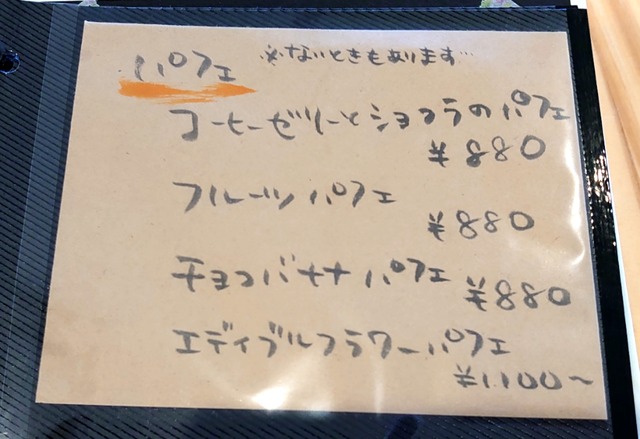 パフェ ※ないときもあります…
コーヒーゼリーとショコラのパフェ
¥880
フルーツパフェ
¥880
チョコバナナパフェ ¥880
エディブルフラワーパフェ
¥1,100〜